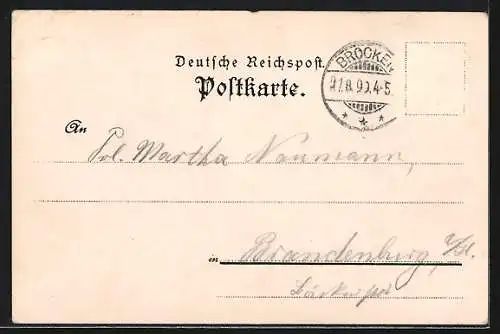 Deutsche Reichspost.
Postkarte.
BROCKEN
An
Frl. Martha Naumann,
in Brandenburg, a/H.